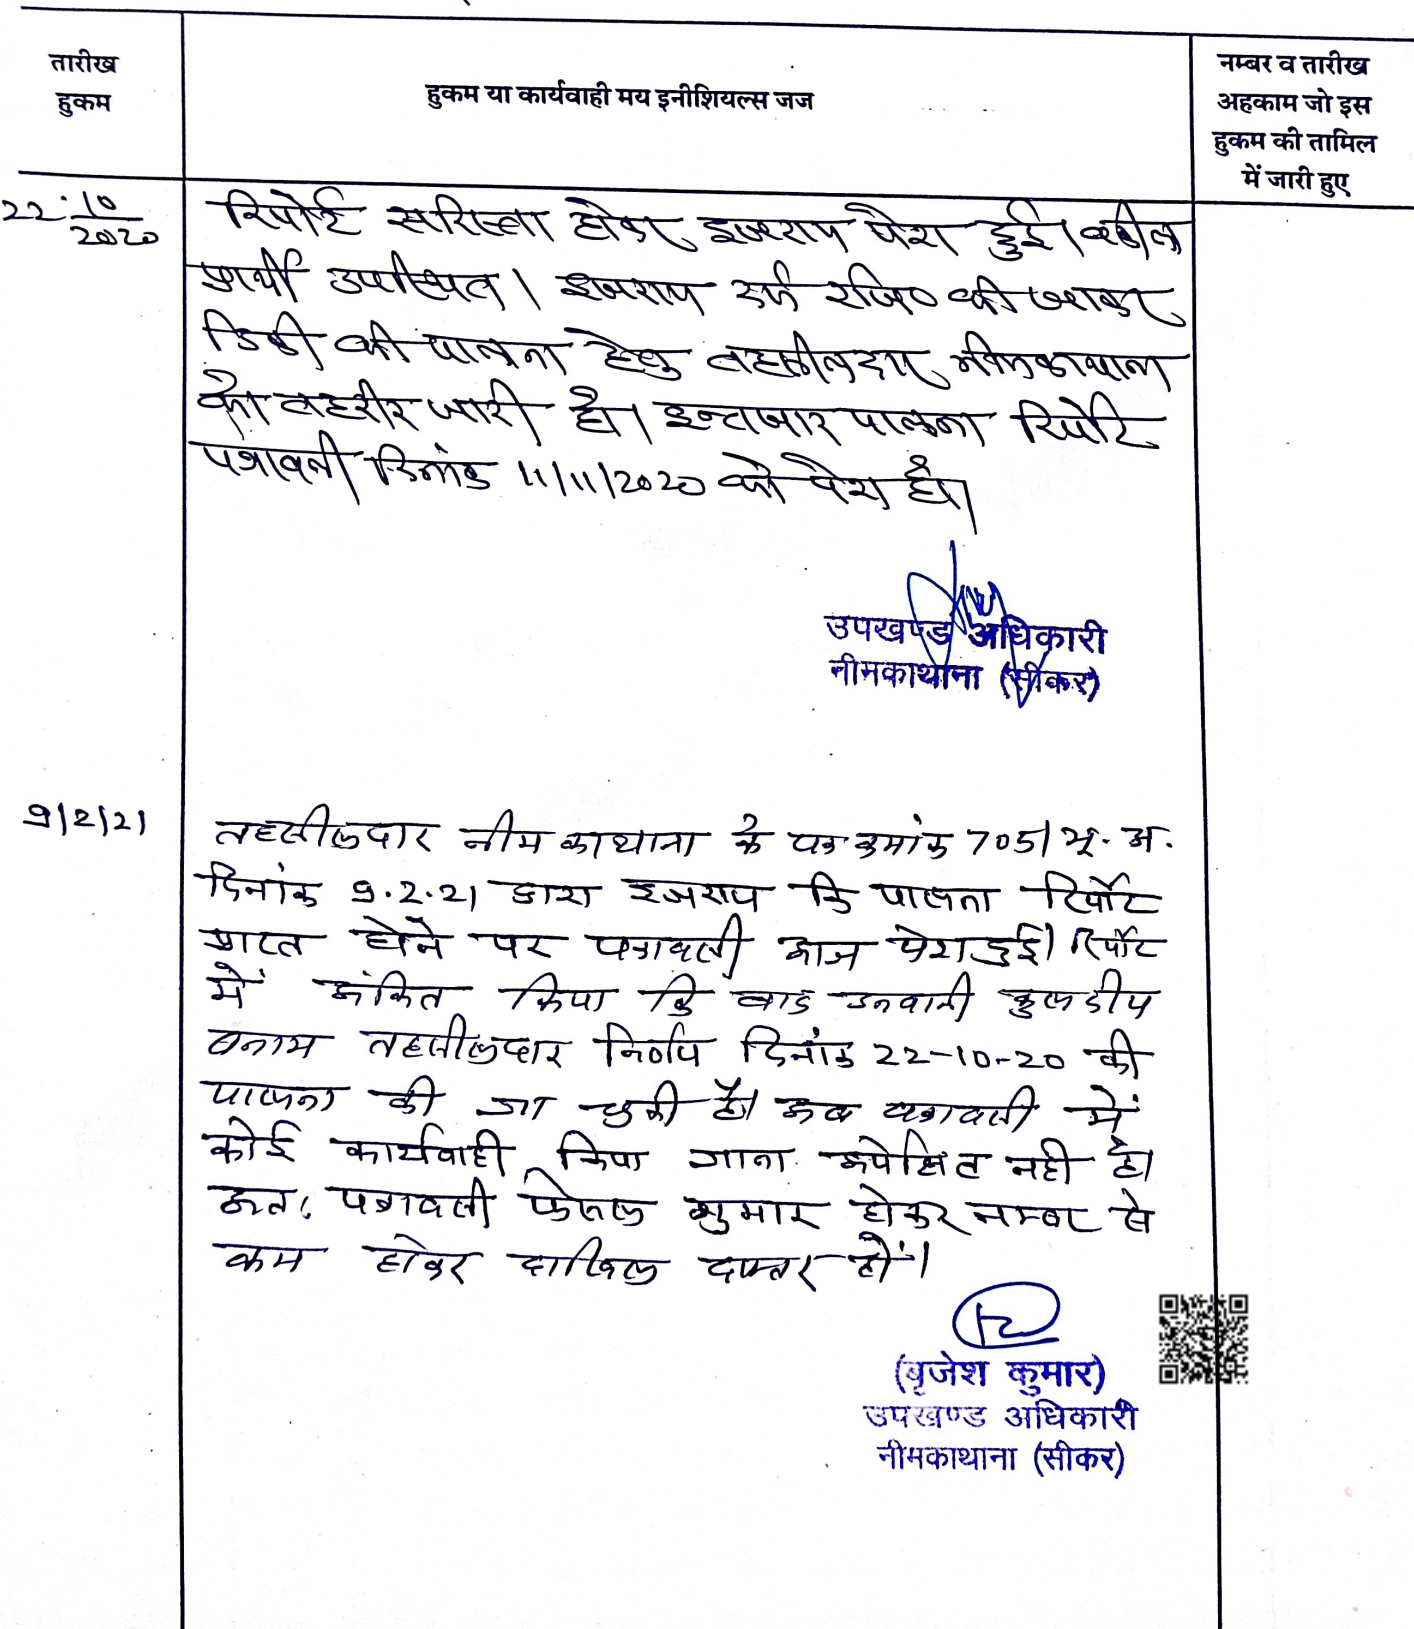 तारीख
हुकम
हुकम या कार्यवाही मय इनीशियल्स जज
नम्बर व तारीख
अहकाम जो इस
हुकम की तामिल
में जारी हुए
22.10
2020
रिपोर्ट सरिस्ता होकर इजराय पेश हुई। वकील
प्रार्थी उपस्थित। इजराय दर्ज रजि० की जाकर
डिक्री की पालना हेतु तहसीलदार नीमकाथाना
को तहरीर जारी हो। इन्तजार पालना रिपोर्ट
पत्रावली दिनांक 11/11/2020 को पेश हो।
उपखण्ड अधिकारी
नीमकाथाना (सीकर)
9/2/21
तहसीलदार नीम काथाना के पत्र क्रमांक 705/भू.अ.
दिनांक 9.2.21 द्वारा इजराय कि पालना रिर्पोट
प्राप्त होने पर पत्रावली आज पेश हुई। रिर्पोट
में अंकित किया कि वाद उनवानी कुलदीप
बनाम तहसीलदार निर्णय दिनांक 22-10-20 की
पालना की जा चुकी है। अब पत्रावली में
कोई कार्यवाही किया जाना अपेक्षित नही है।
अत: पत्रावली फैसल शुमार होकर नम्बर से
कम होकर दाखिल दफ्तर हों।
(बृजेश कुमार)
उपखण्ड अधिकारी
नीमकाथाना (सीकर)